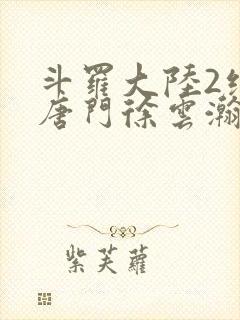 斗羅大陸2絕
唐門徐雲瀚
紫芙蘿